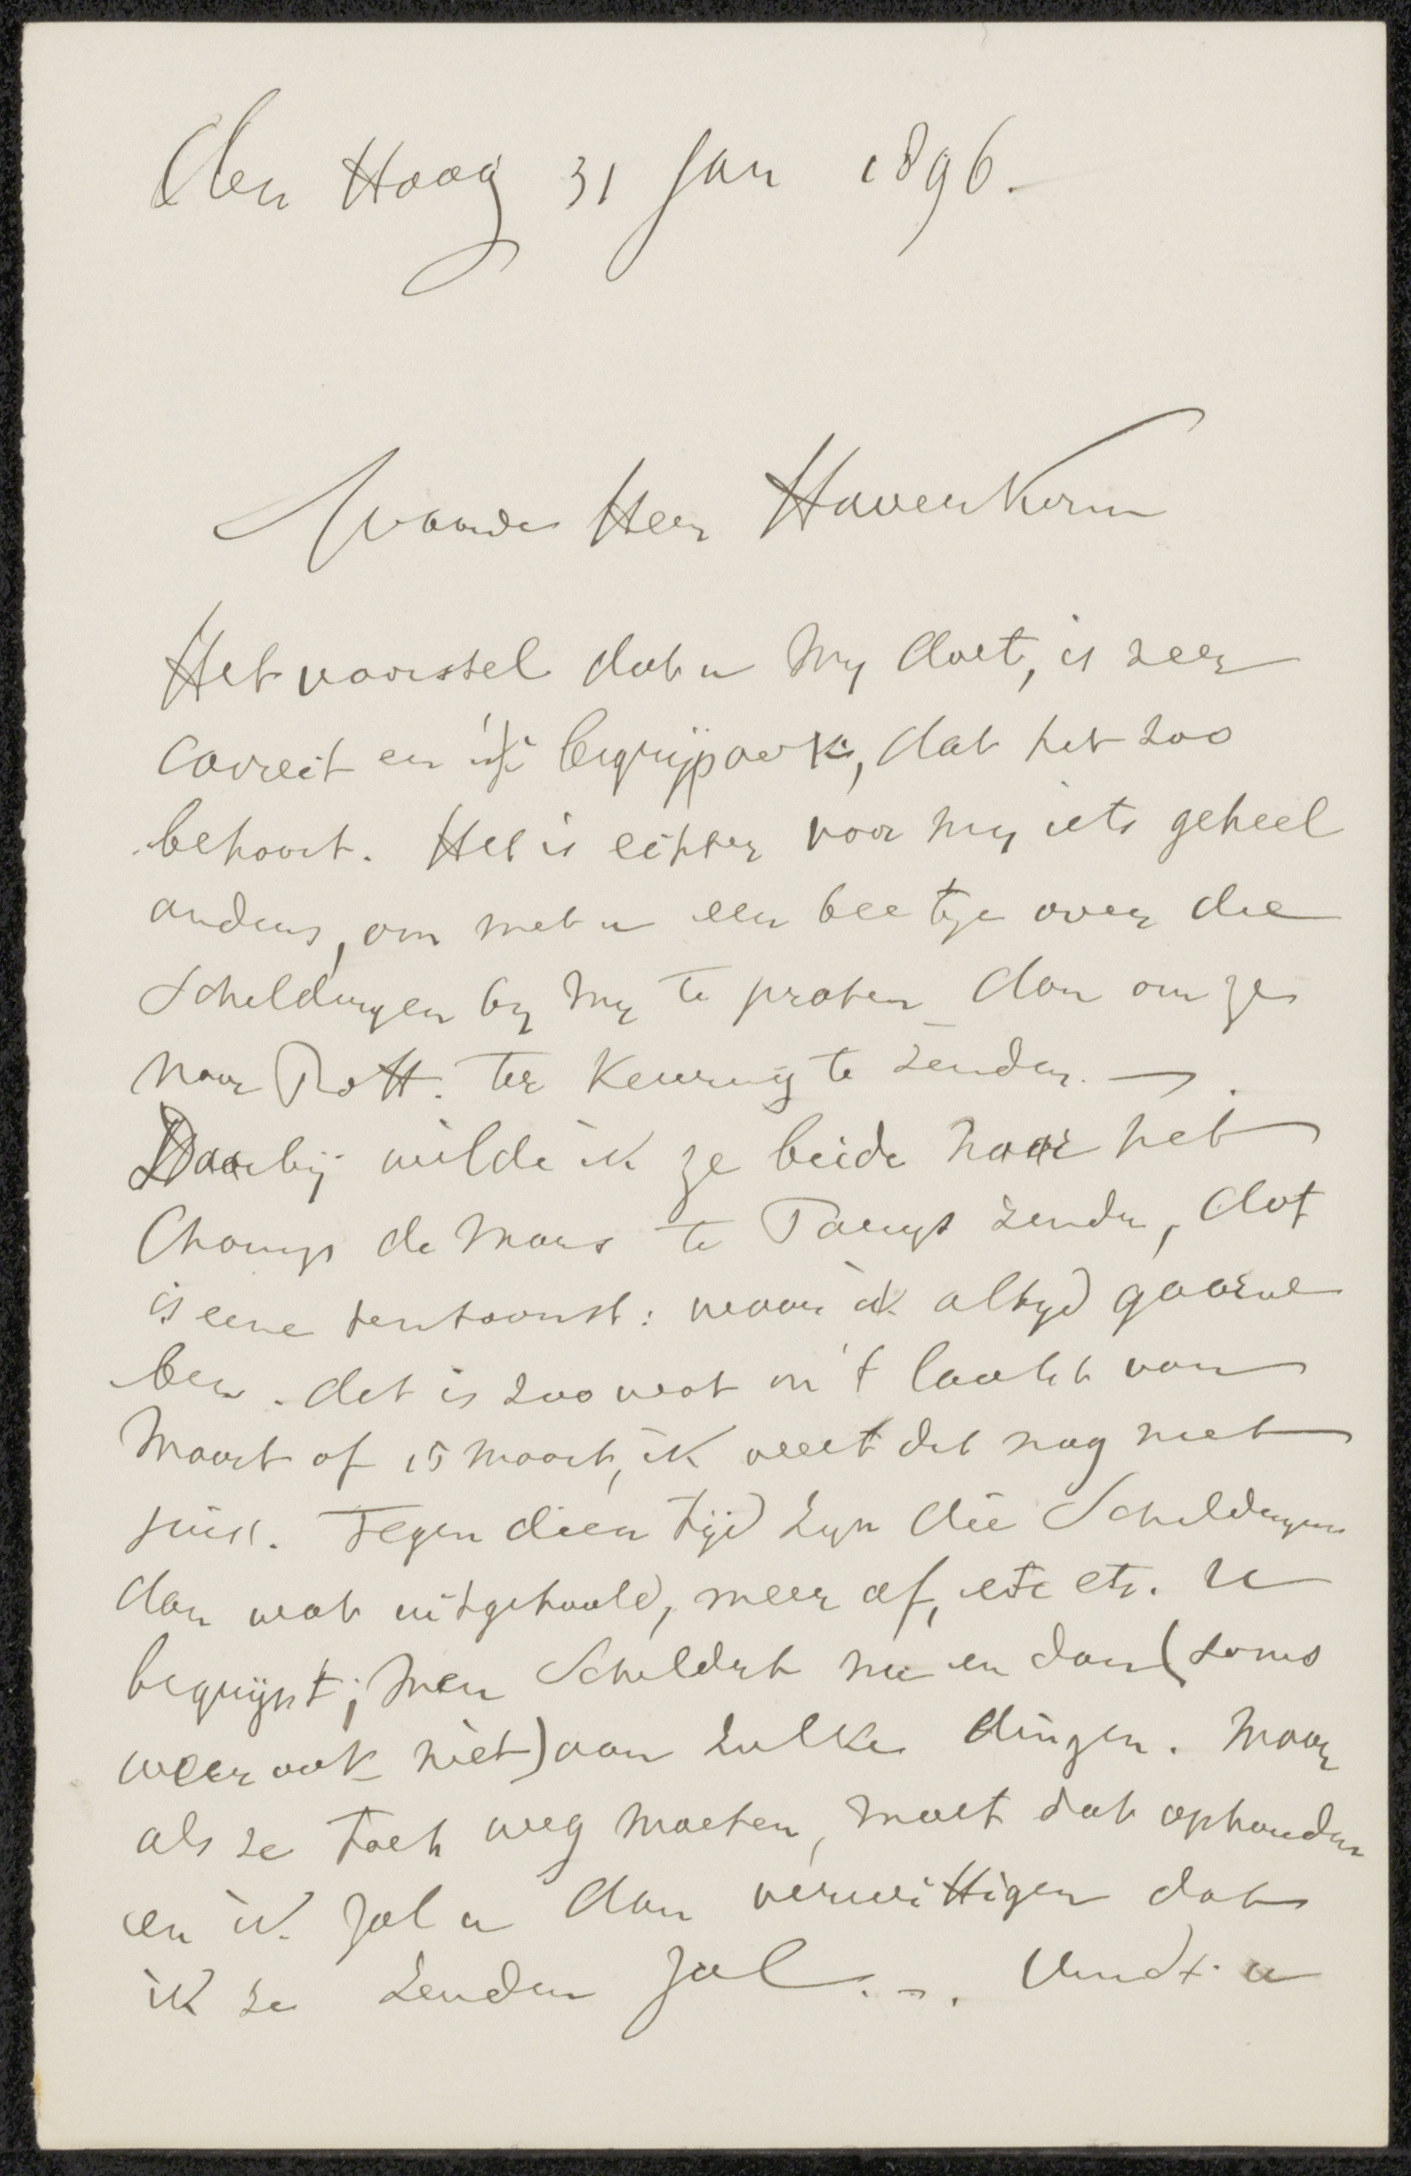 den Haag 31 Jan 1896.
Waarde Heer Haverkorn
Het voorstel dat u my doet, is zeer
correct en ik begrijp ook, dat het zoo
behoort. Het is echter voor my iets geheel
anders, om met u een beetje over die
Schilderyen by my te praten dan om ze
naar Rott. ter Keuring te zenden. —.
Daarbij wilde ik ze beide naar het
Champ de Mars te Parys zenden, dat
is eene tentoonst: waar ik altyd gaarne
ben. dat is zoo wat in 't laatst van
Maart of 15 Maart, ik weet dat nog niet
juist. Tegen dien tijd zyn die Schilderyen
dan wat uitgehaald, meer af, etc etc. U
begrijpt; men Schildert nu en dan (soms
weer ook niet) aan zulke dingen. Maar
als ze toch weg moeten, moet dat ophouden
en ik zal u dan verwittigen dat
ik ze zenden zal. –. Vindt u